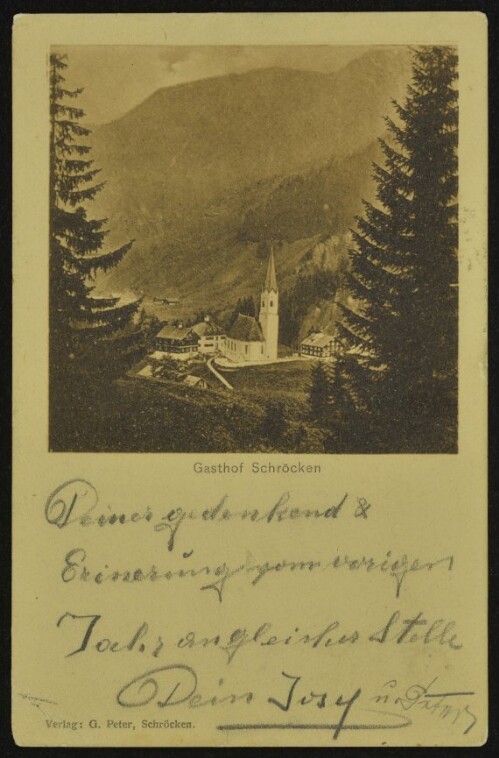 Gasthof Schröcken
Deiner gedenkend &
Erinerung vom vorigen
Jahr an gleicher Stelle
Dein Josef u.
Verlag: G. Peter, Schröcken.